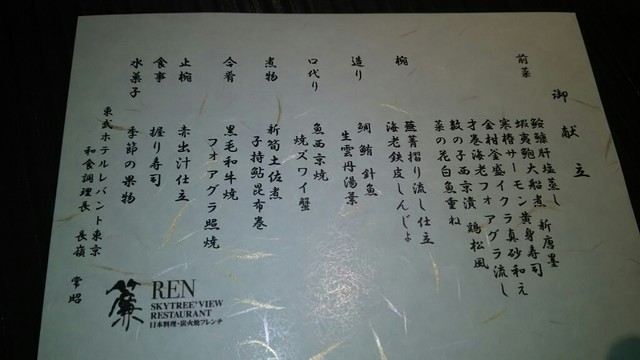 御献立
前菜
鮟鱇肝塩蒸し 新唐墨
蝦夷鮑大船煮
寒椿サーモン黄身寿司
金柑釜盛イクラ真砂和え
才巻海老フォアグラ流し
数の子西京漬 鶏松風
菜の花白魚重ね
椀
蕪菁摺り流し仕立
海老鉄皮しんじょ
造り
鯛 鮪 針魚
生雲丹湯葉
口代り
魚西京焼
焼ズワイ蟹
煮物
新筍土佐煮
子持鮎昆布巻
合肴
黒毛和牛焼
フォアグラ照焼
止椀
赤出汁仕立
食事
握り寿司
水菓子
季節の果物
東武ホテルレバント東京
和食調理長 長嶺 常昭
簾
REN
SKYTREE VIEW
RESTAURANT
日本料理・炭火焼フレンチ